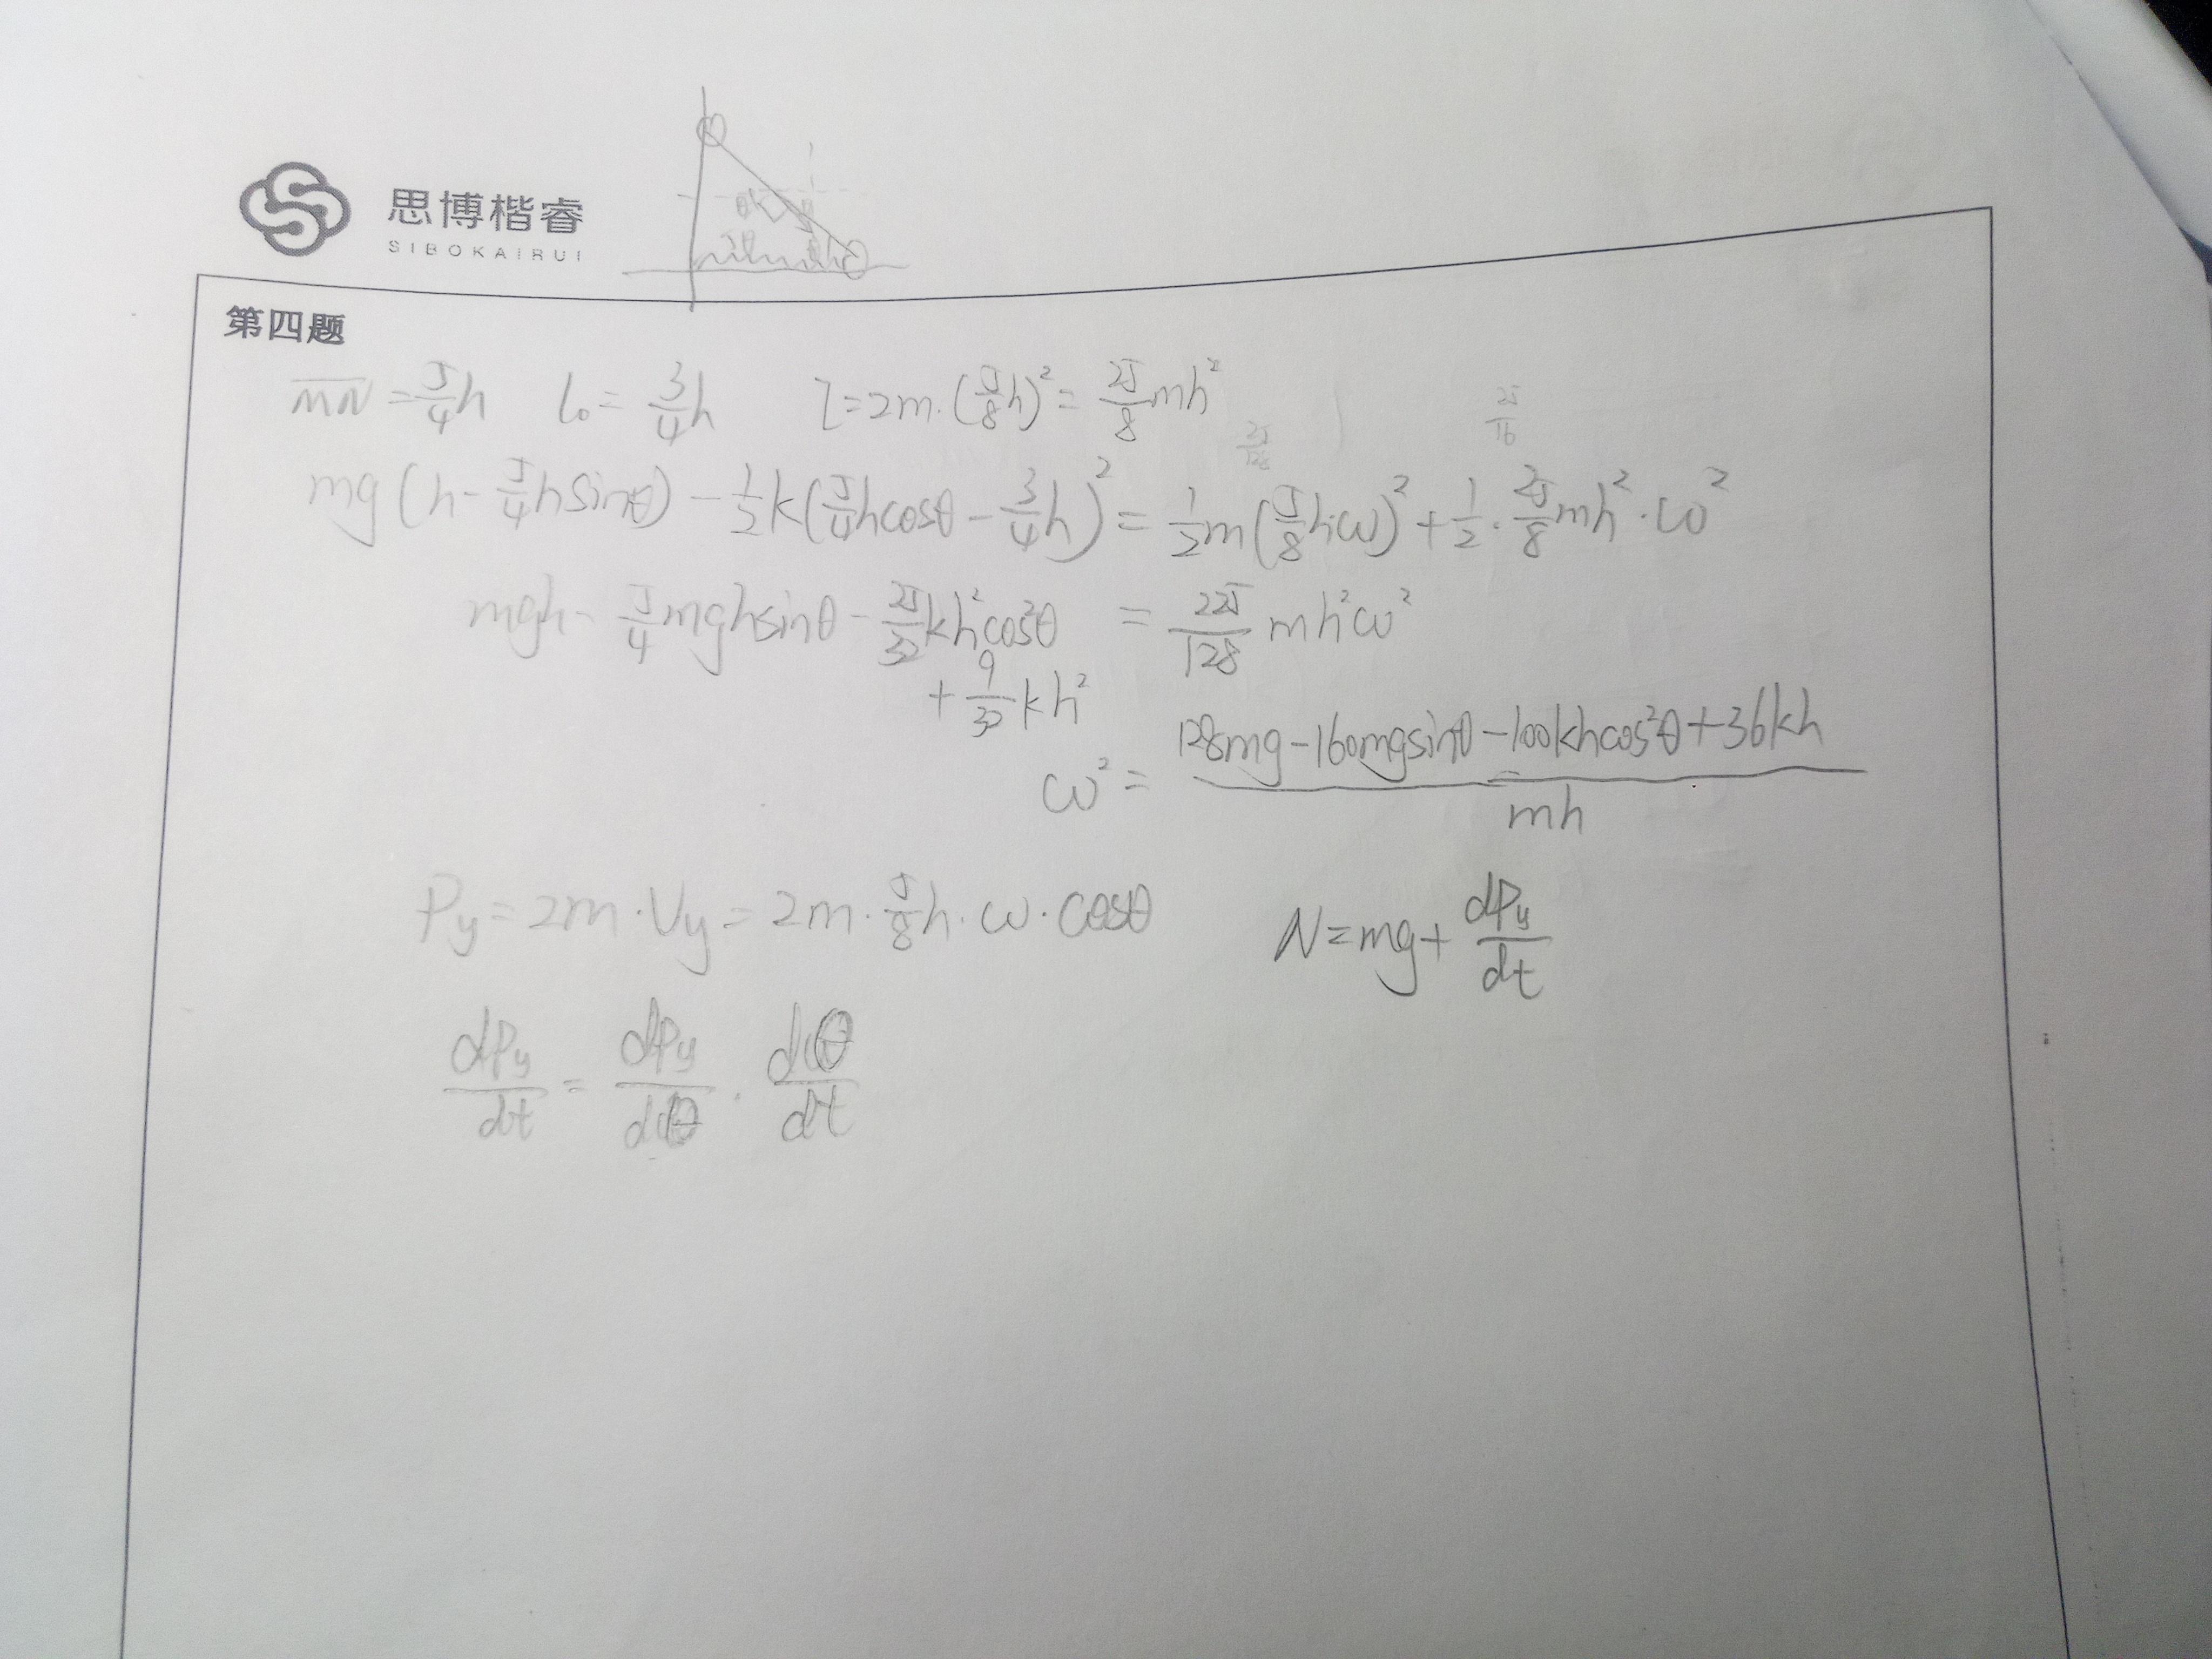 思博楷睿
SIBOKAIRUI
第四题
MN = 5/4 h l₀ = 3/4 h I = 2m·(5/8 h)² = 25/8 mh²
25/128 25/16
mg(h - 5/4 h sinθ) - 1/2 k(5/4 h cosθ - 3/4 h)² = 1/2 m(5/8 hω)² + 1/2 · 25/8 mh² · ω²
mgh - 5/4 mgh sinθ - 25/32 kh² cos²θ = 225/128 mh²ω²
+ 9/32 kh²
ω² = (128mg - 160mg sinθ - 100kh cos²θ + 36kh) / mh
Py = 2m·Vy = 2m · 5/8 h · ω · cosθ N = mg + dPy/dt
dPy/dt = dPy/dθ · dθ/dt